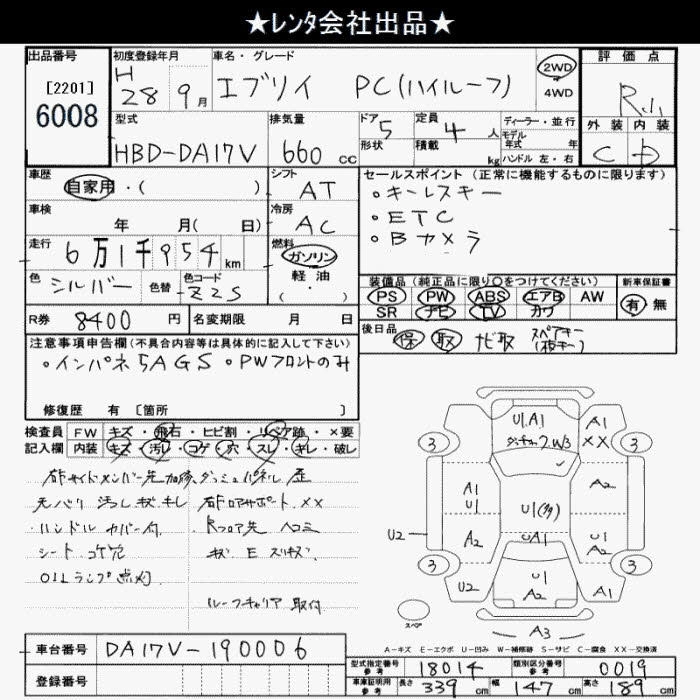 ★レンタ会社出品★
出品番号 初度登録年月 車名・グレード 評価点
[2201] H 28 9月 エブリイ PC(ハイルーフ) 2WD 4WD R.1
6008
型式 排気量 ドア 5 定員 4人 ディーラー・並行 外装 内装
HBD-DA17V 660cc 形状 積載 kg モデル年式 年式 ハンドル 左・右 C D
車歴 シフト セールスポイント(正常に機能するものに限ります)
自家用・( ) AT 。キーレスキー
車検 冷房 。ETC
年 月( 日) AC 。Bカメラ
走行 6万1千954km 燃料 ガソリン 軽・油 ( )
色 シルバー 色替 色コード Z2S
装備品(純正品に限り○をつけてください) 新車保証書
PS PW ABS エアB AW 有・無
SR ナビ TV カワ
R券 8400円 名変期限 月 日
後日品 保 取 ナビ取 スペアキー
注意事項申告欄(不具合内容等は具体的に記入して下さい)
。インパネ5AGS 。PWフロントのみ
修復歴 有 [箇所 ]
検査員 FW キズ・飛石・ヒビ割・リペア跡・×要
記入欄 内装 キズ・汚レ・コゲ・穴・スレ・キレ・破レ
天バリ 汚レ キズ キレ
ハンドル カバー付 Rフロア先 ヘコミ
シート コゲ穴
OILランプ点灯
ルーフキャリア 取付
U1.A1
A1
XX
3 3
A1
U1
U1(多)
A2
U2
A2
U A1
U
A2
3 3
U2
U1
A2
A1
スペア
A3
A-キズ E-エクボ U-凹み W-補修跡 S-サビ C-腐食 XX-交換済
車台番号 DA17V-190006
登録番号
型式指定番号 参考 18014 類別区分番号 参考 0019
車庫証明用 参考 長さ 339cm 幅 147cm 高さ 189cm